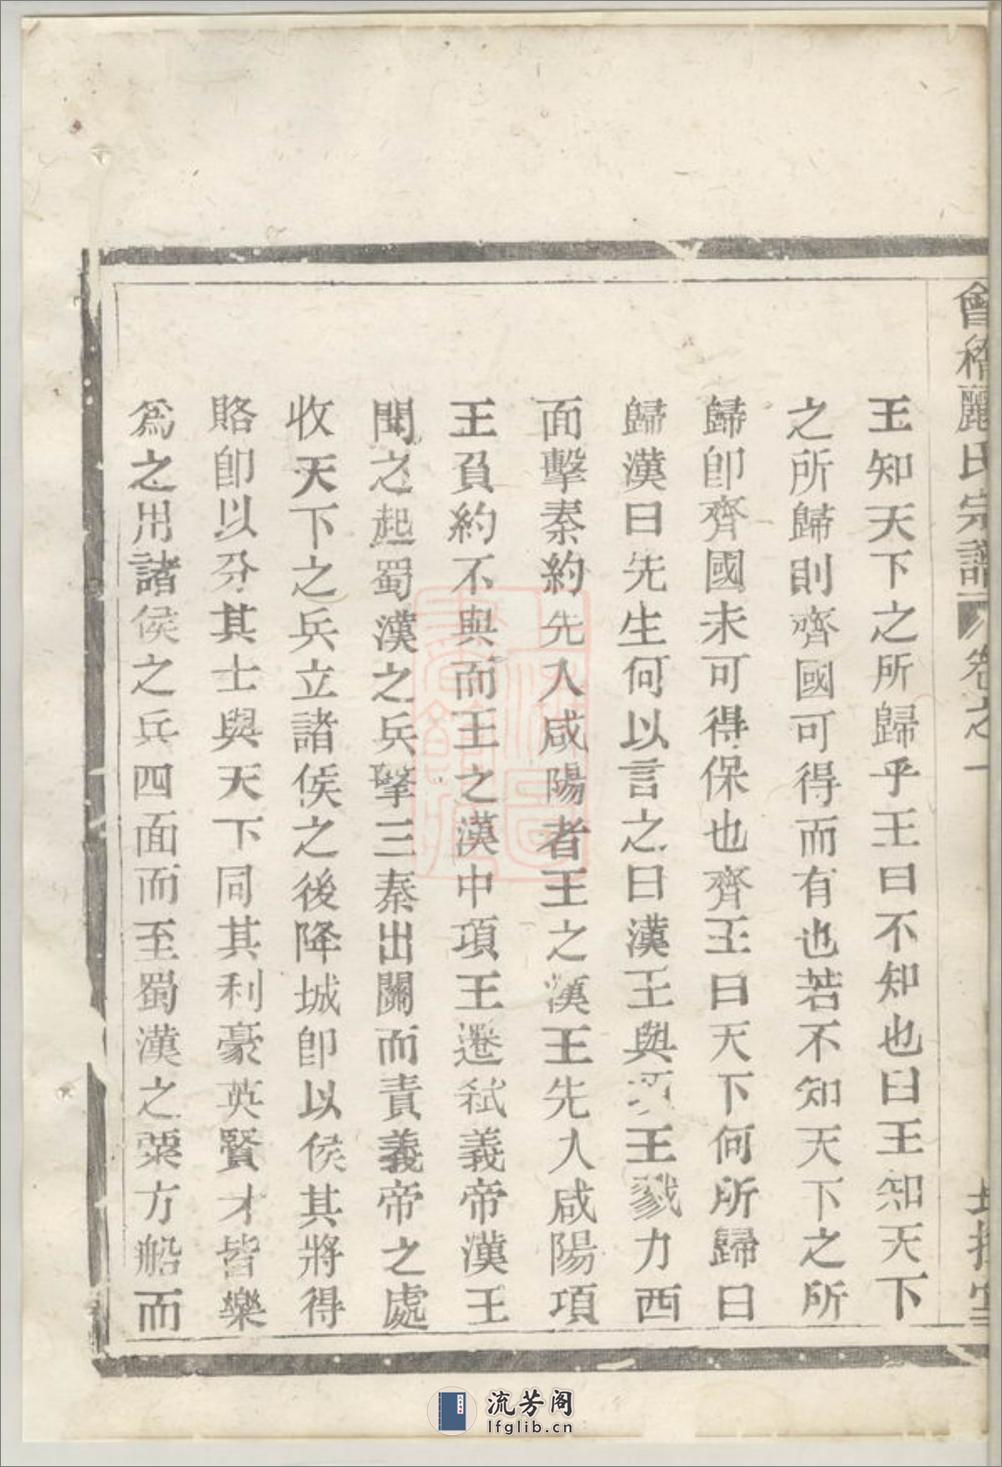 會稽酈氏宗譜 卷之一
王知天下之所歸乎王曰不知也曰王知天下
之所歸則齊國可得而有也若不知天下之所
歸卽齊國未可得保也齊王曰天下何所歸曰
歸漢曰先生何以言之曰漢王與項王戮力西
面擊秦約先入咸陽者王之漢王先入咸陽項
王負約不與而王之漢中項王遷弒義帝漢王
聞之起蜀漢之兵擊三秦出關而責義帝之處
收天下之兵立諸侯之後降城卽以侯其將得
賂卽以分其士與天下同其利豪英賢才皆樂
爲之用諸侯之兵四面而至蜀漢之粟方船而
流芳阁
lfglib.cn